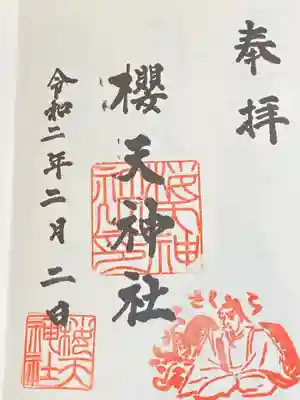 奉拝
櫻天神社
令和二年二月二日
さくら
櫻天
神社